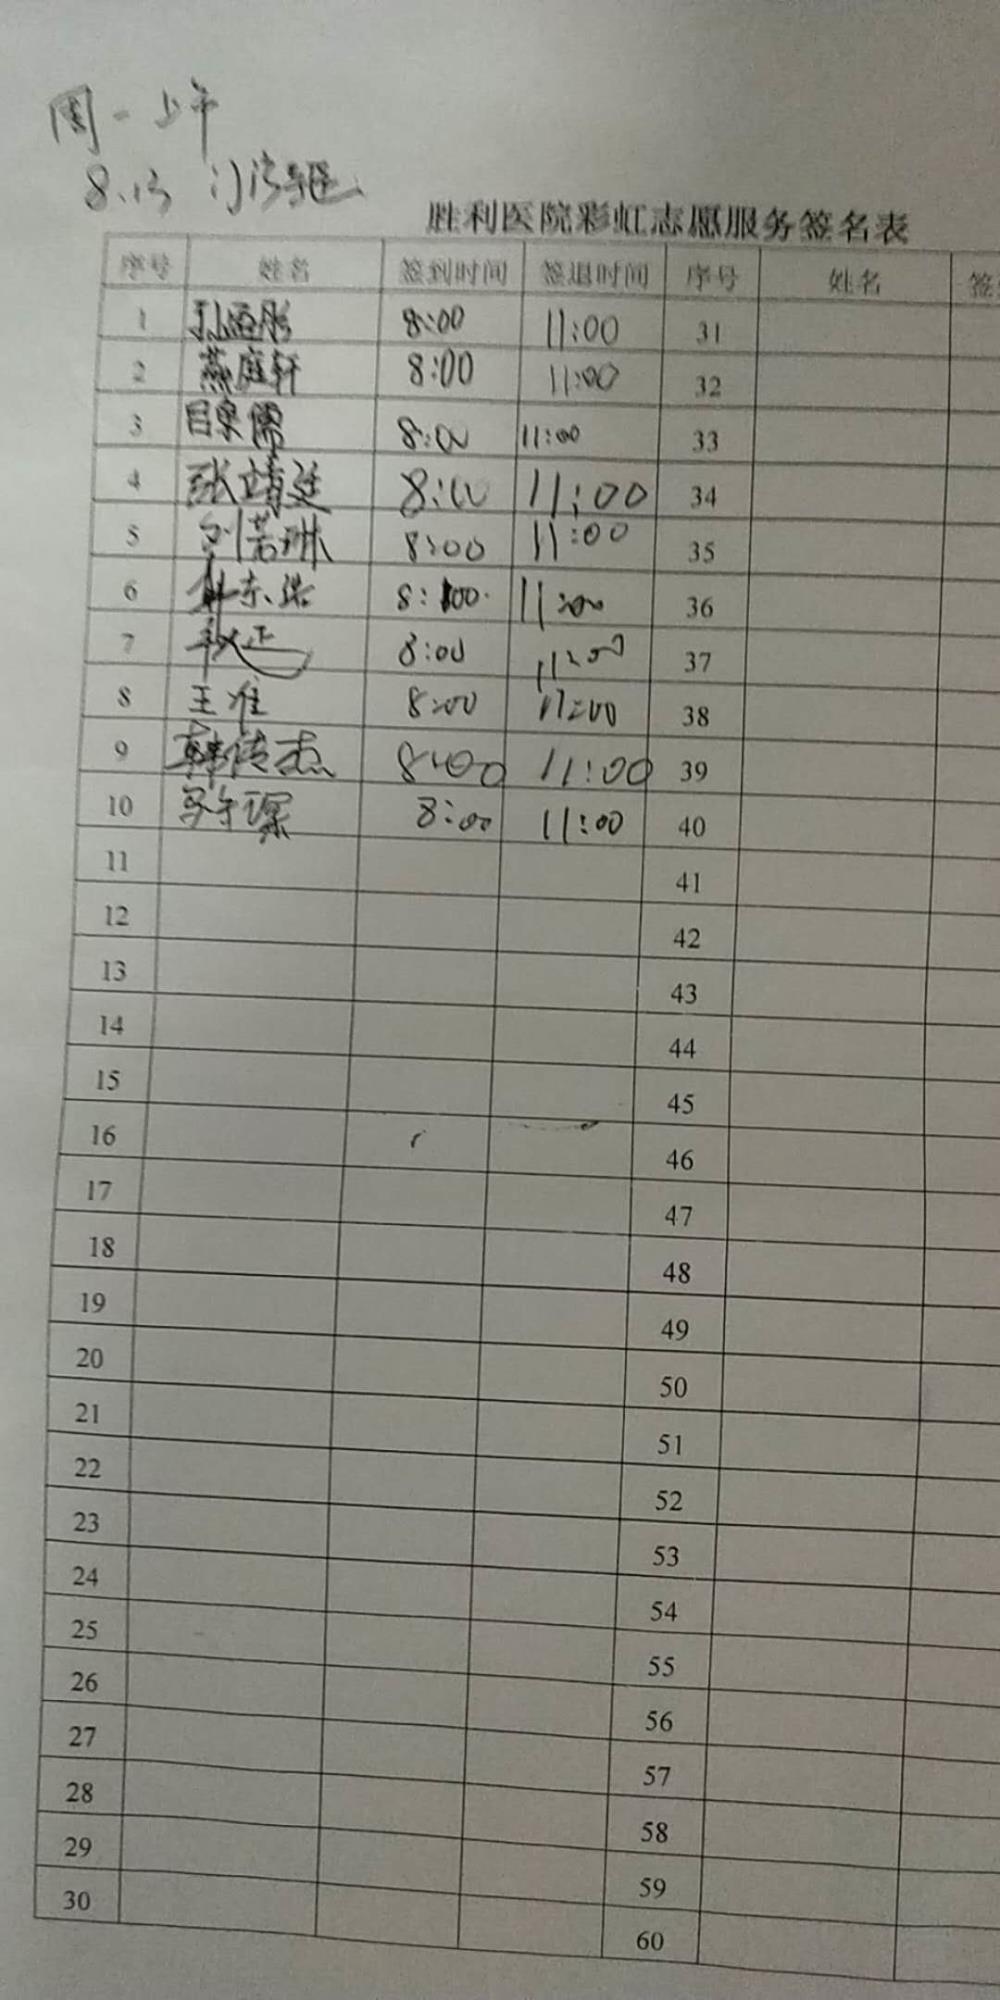 周一上午
8.13 门诊
胜利医院彩虹志愿服务签名表
序号 姓名 签到时间 签退时间 序号 姓名 签
1 8:00 11:00 31
2 燕庭轩 8:00 11:00 32
3 8:00 11:00 33
4 张靖廷 8:00 11:00 34
5 刘若琳 8:00 11:00 35
6 8:00 11:00 36
7 8:00 11:00 37
8 王准 8:00 11:00 38
9 韩传杰 8:00 11:00 39
10 8:00 11:00 40
11 41
12 42
13 43
14 44
15 45
16 46
17 47
18 48
19 49
20 50
21 51
22 52
23 53
24 54
25 55
26 56
27 57
28 58
29 59
30 60